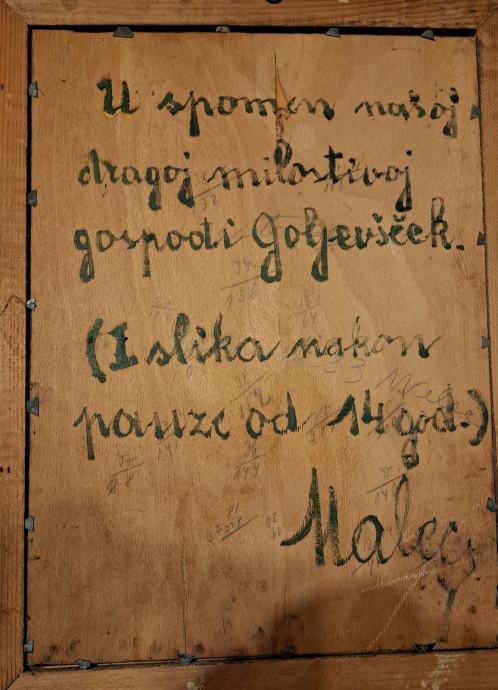 U spomen našoj
dragoj milostivoj
gospodi Goljevšček.
(I slika nakon
pauze od 14 god.)
Malec